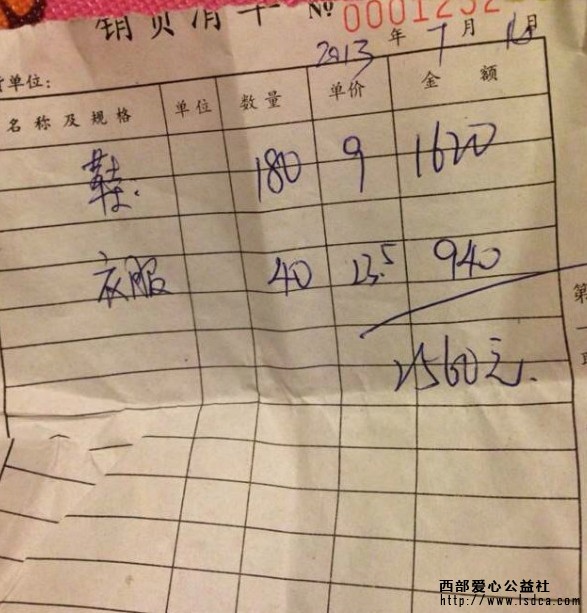 销货清单 № 0001252
2013年7月16日
单位:
名称及规格 单位 数量 单价 金额
鞋. 180 9 1620
衣服 40 23.5 940
2560元.
第一联
西部爱心公益社
http://www.lsdca.com